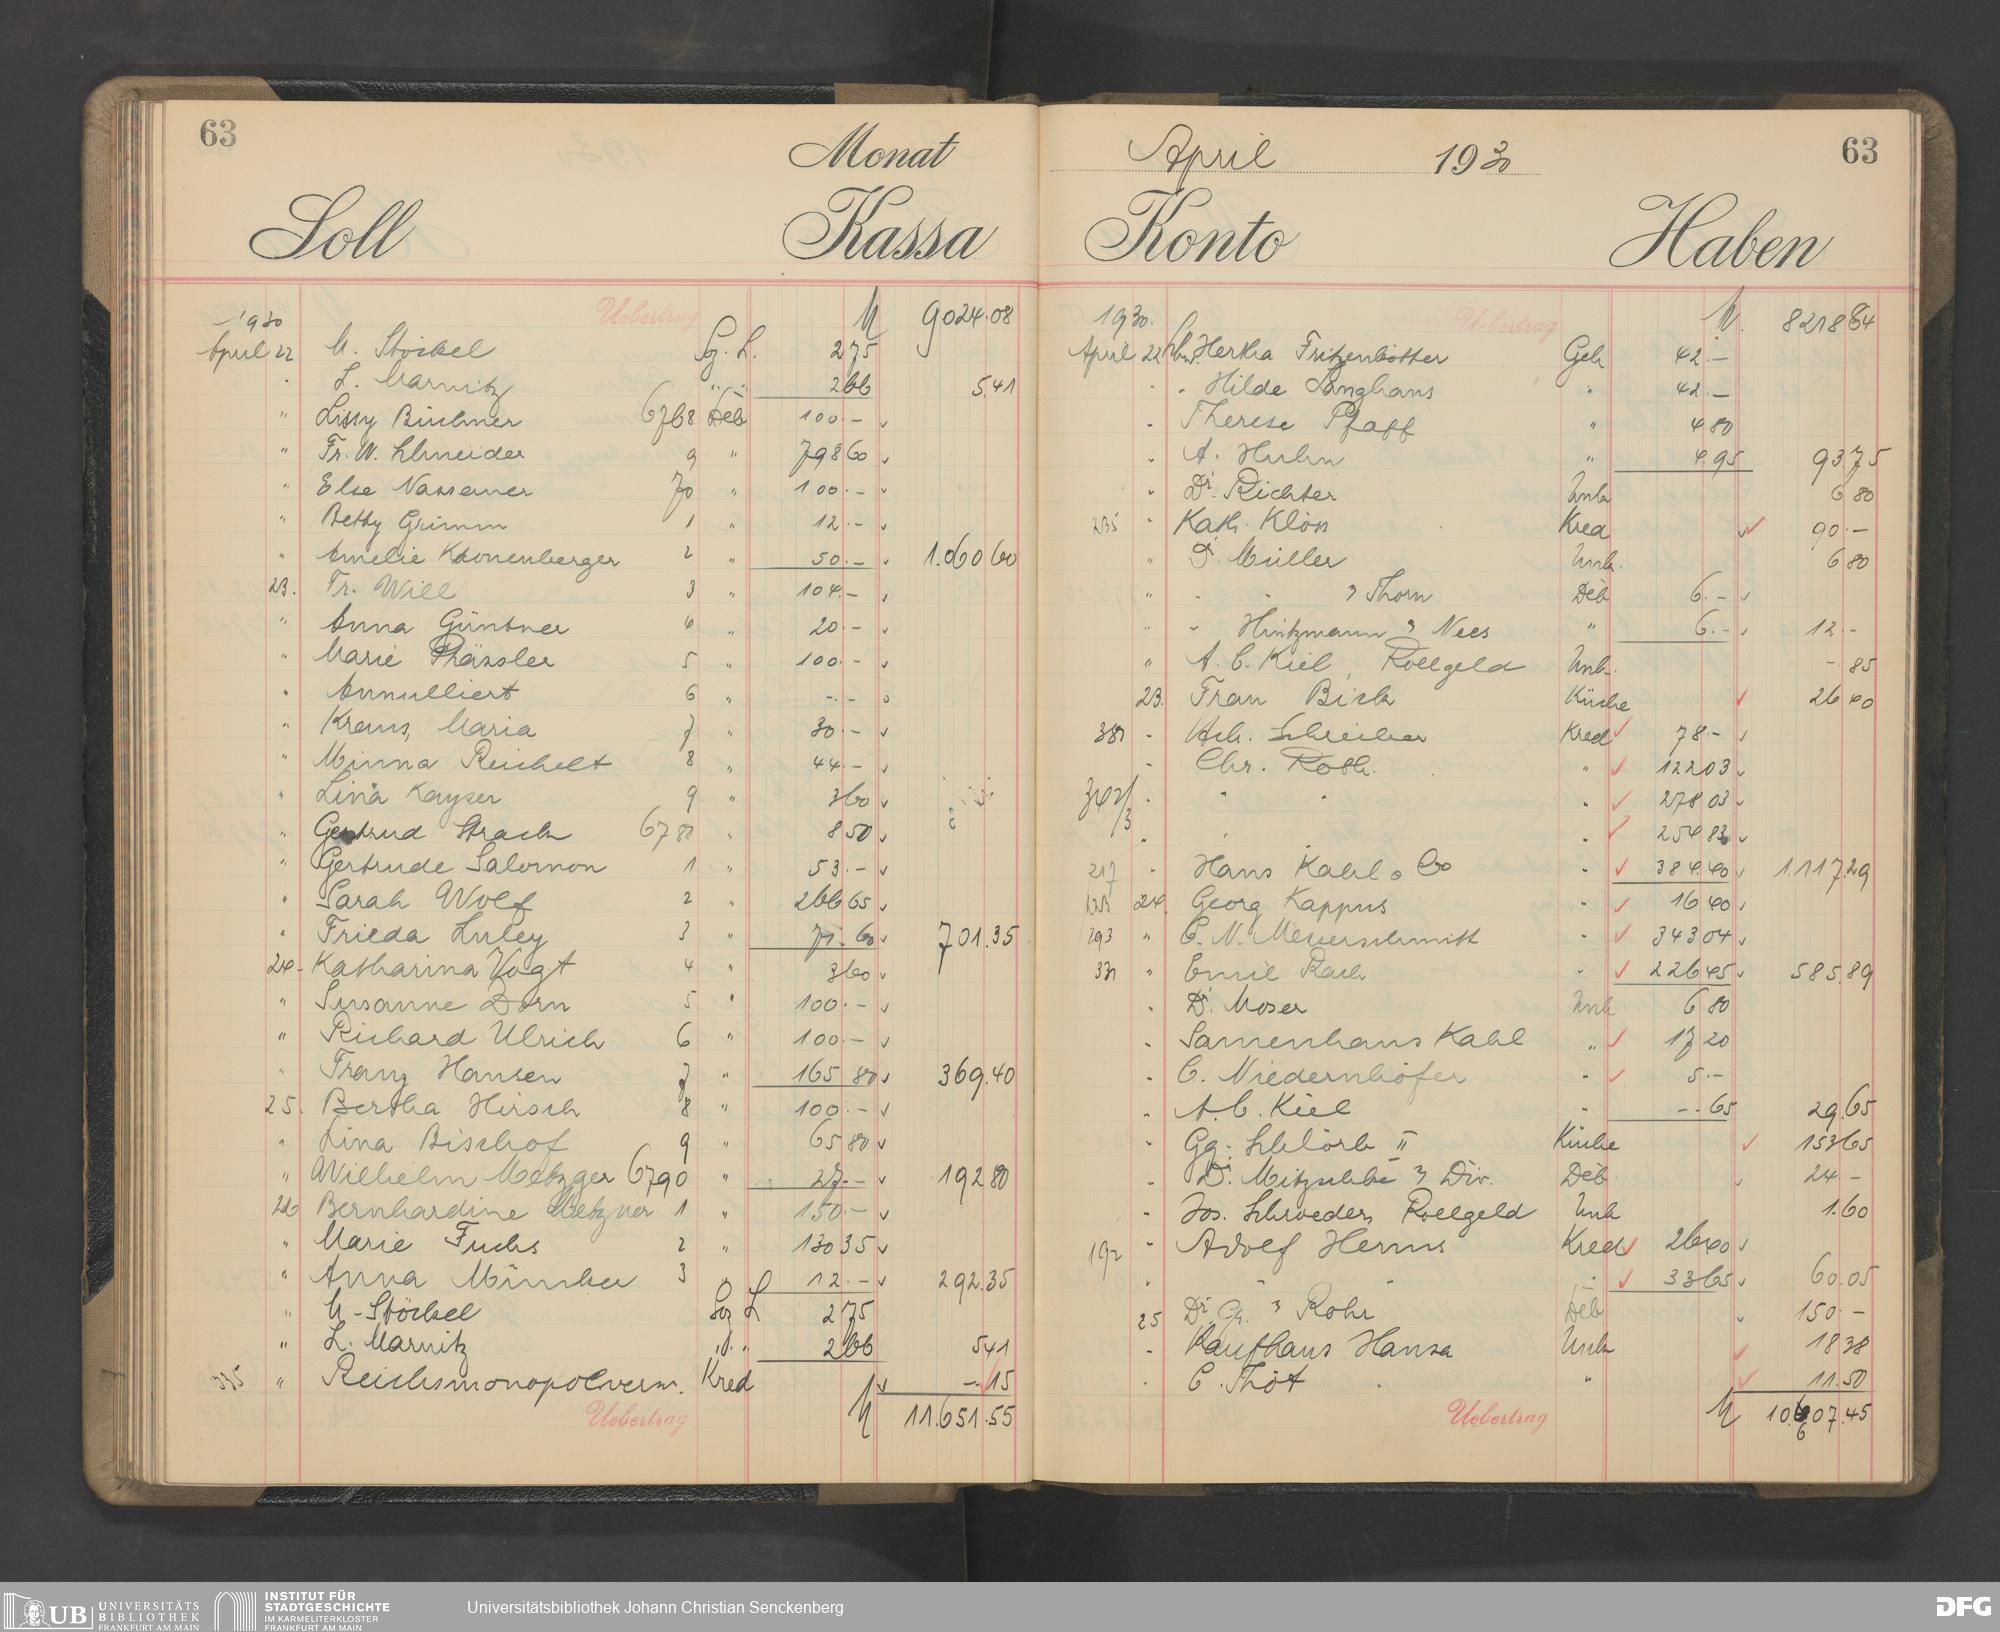 63
Monat
Soll
Kassa
Uebertrag
M
9024.08
1930
April 22 M. Störkel Soz. L. 2 75
" L. Marnitz " " 2 66 5.41
" Lissy Büchner 6768 Deb 100.-
" Fr. W. Schneider 9 " 798 60
" Else Nassauer 70 " 100.-
" Betty Grimm 1 " 12.-
" Amelie Kronenberger 2 " 50.- 1.060 60
23. Fr. Will 3 " 104.-
" Anna Güntner 4 " 20.-
" Marie 5 " 100.-
" Annulliert 6 " -.-
" Kraus, Maria 7 " 30.-
" Minna Reichelt 8 " 44.-
" Lina Kayser 9 " 3 60
" Gertrud Strack 6780 " 8 50
" Gertrude Salomon 1 " 53.-
" Sarah Wolf 2 " 266 65
" Frieda Luley 3 " 71.60 701.35
24. Katharina Vogt 4 " 3 60
" Susanne Dorn 5 " 100.-
" Richard Ulrich 6 " 100.-
" Franz Hansen 7 " 165 80 369.40
25. Bertha Hirsch 8 " 100.-
" Lina Bischof 9 " 65 80
" Wilhelm Metzger 6790 " 27.- 192 80
26 Bernhardine Metzner 1 " 150.-
" Marie Fuchs 2 " 130 35
" Anna 3 " 12.- 292.35
" M. Störkel Soz L 2 75
" L. Marnitz " " 2 66 5 41
335 " Reichsmonopolverw. Kred -.15
Uebertrag
M 11.651.55
April 1930
63
Konto
Haben
Uebertrag
M. 8218 64
1930.
April 22 Hertha Fritzenkötter Geh 42.-
" " Hilde Langhans " 42.-
" Therese Pfaff " 4 80
" A. Huhn " 4.95 93.75
" Dr. Richter Unk 6 80
235 " Kath. Klöss Kred 90.-
" Dr. Müller Unk. 6 80
" " " Thorn Deb 6.-
" " Hintzmann Nees " 6.- 12.-
" A. C. Kiel, Rollgeld Unk. -.85
23. Frau Bick Küche 26 40
380 " Hch. Schreiber Kred 78.-
" Chr. Roth. " 122 03
342/3 " " " " 278 03
" " " 254 83
217 " Hans Kahl & Co " 384.40 1.117.29
24. Georg Kappus " 16 40
293 " C. N. Meuerschmitt " 343 04
331 " Emil Rach " 226 45 585.89
" Dr. Moser Unk 6 80
" Samenhaus Kahl " 17 20
" C. Niedernhöfer " 5.-
" A. C. Kiel " -.65 29.65
" Gg. Schlörb II Küche 153 65
" Dr. Div. Deb 24 -
" Jos. Schroeder, Rollgeld Unk 1.60
192 " Adolf Herms Kred 26 40
" " " " 33 65 60.05
25 Dr. Gr. Rohr Deb 150 -
" Kaufhaus Hansa Unk 18 38
" C. Thöt " 11.50
Uebertrag
M 10.607.45
UB UNIVERSITÄTS
BIBLIOTHEK
FRANKFURT AM MAIN
INSTITUT FÜR
STADTGESCHICHTE
IM KARMELITERKLOSTER
FRANKFURT AM MAIN
Universitätsbibliothek Johann Christian Senckenberg
DFG